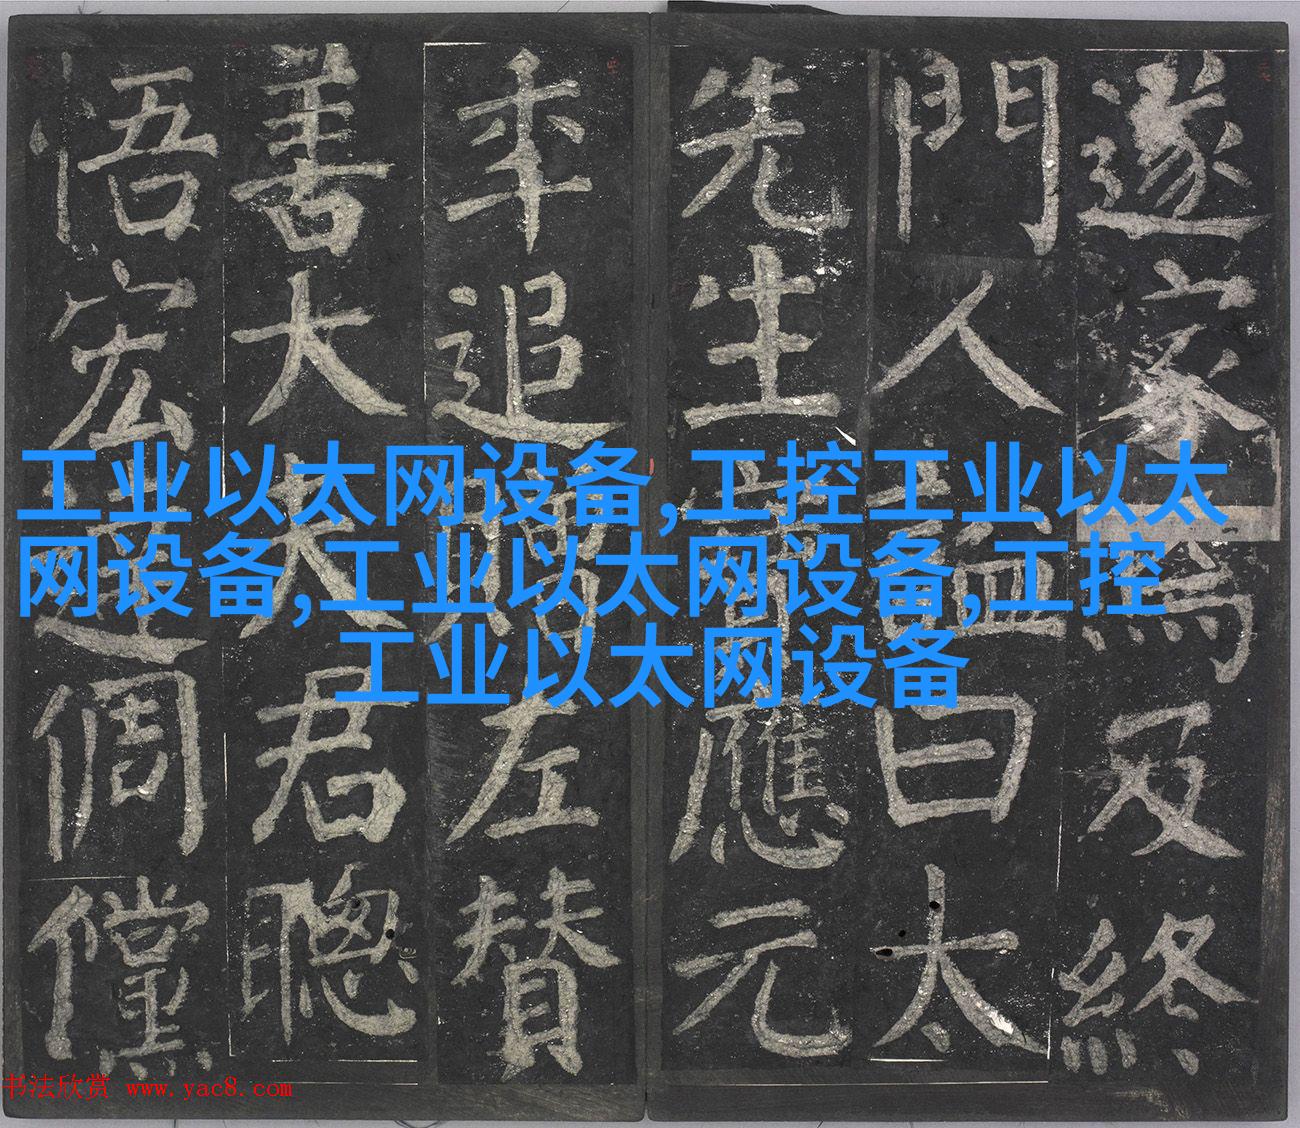 遂家焉及終
門人諡曰太
先生寶應元
年追贈左贊
善大夫君聰
悟宏達倜儻
工业以太网设备,工控工业以太
网设备,工业以太网设备,工控
工业以太网设备
书法欣赏 www.yac8.com